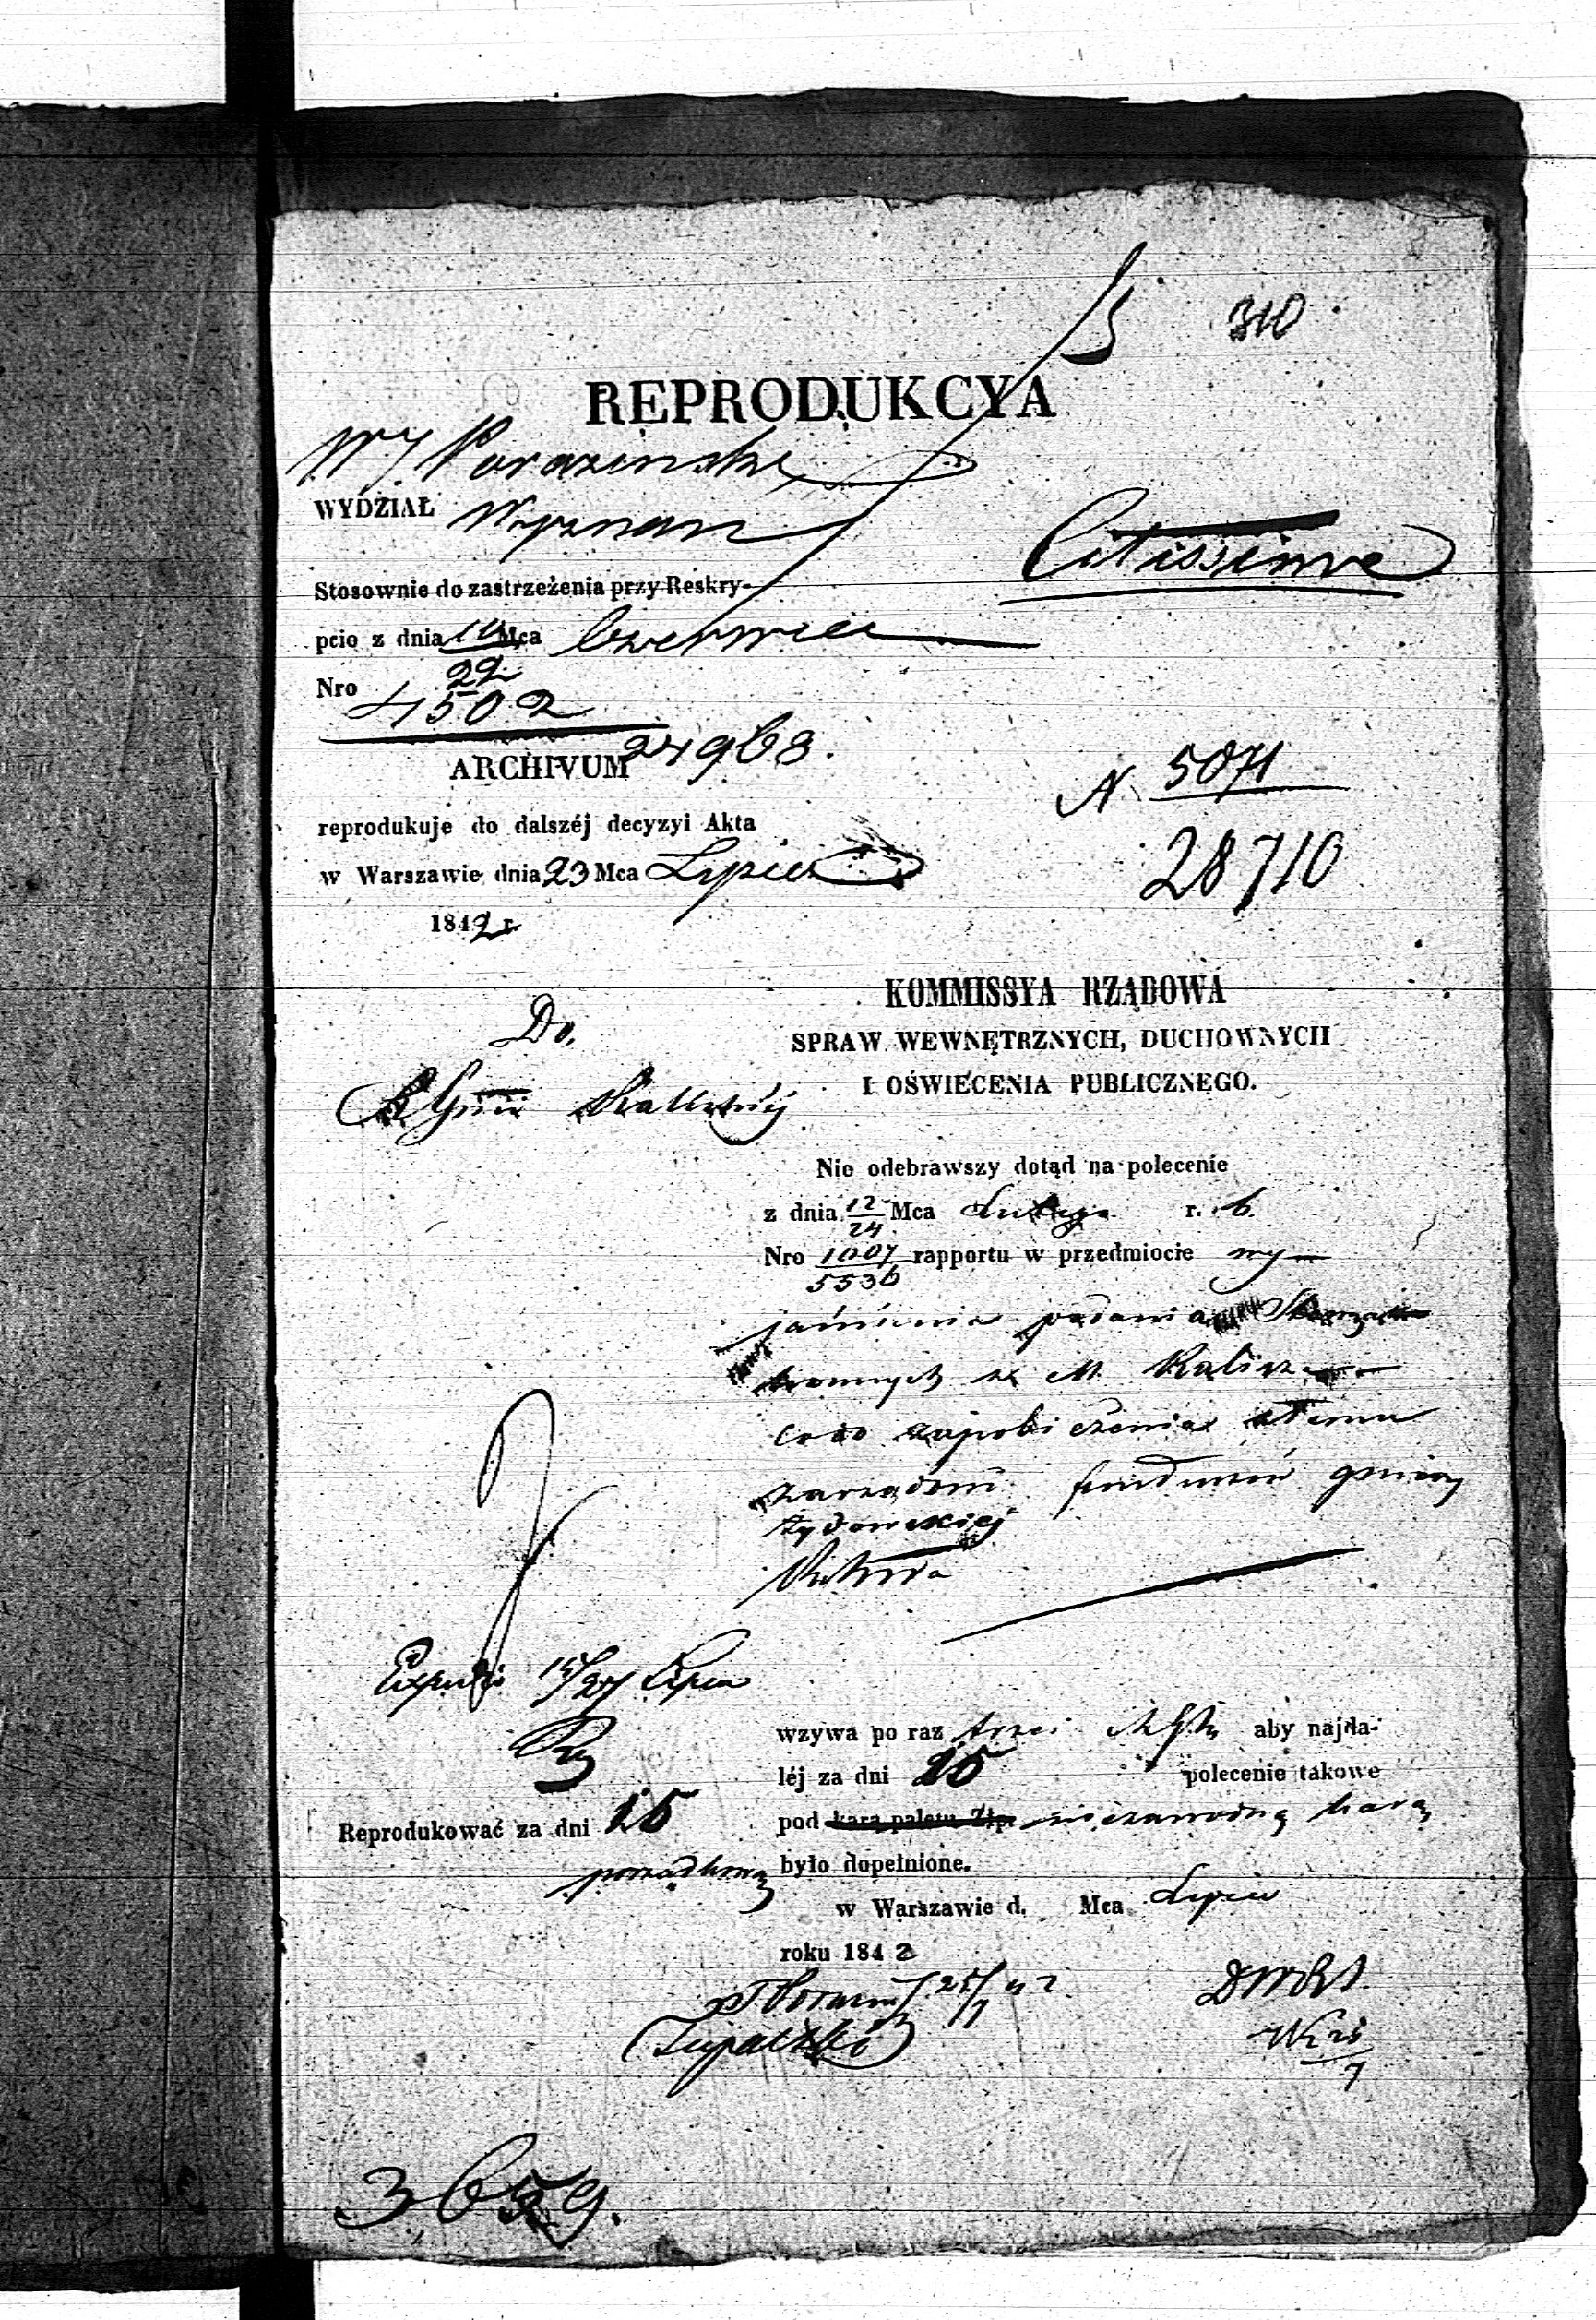 310
REPRODUKCYA
WYDZIAŁ Wyznań
Citissime
Stosownie do zastrzeżenia przy Reskry-
pcie z dnia 10/22 Mca Czerwca
Nro 4502
24968.
ARCHIVUM
N 5071
28710
reprodukuje do dalszéj decyzyi Akta
w Warszawie dnia 23 Mca Lipca
1842 r.
KOMMISSYA RZĄDOWA
SPRAW WEWNĘTRZNYCH, DUCHOWNYCH
I OŚWIECENIA PUBLICZNEGO.
Do
RGu Kaliskiéj
Nie odebrawszy dotąd na polecenie
z dnia 12/24 Mca Lutego r. b.
Nro 1007/5536 rapportu w przedmiocie wy-
jaśnienia podania
z M. Kalisza
co do zapobieżenia złemu
zarządowi funduszów gminy
żydowskiej
Expedi 15/27 Lipca
wzywa po raz trzeci aby najda-
léj za dni 15 polecenie takowe
pod karą paletu Złp. niezawodną karą
porządkową
było dopełnione.
Reprodukować za dni 15
w Warszawie d. Mca Lipca
roku 1842
3659.